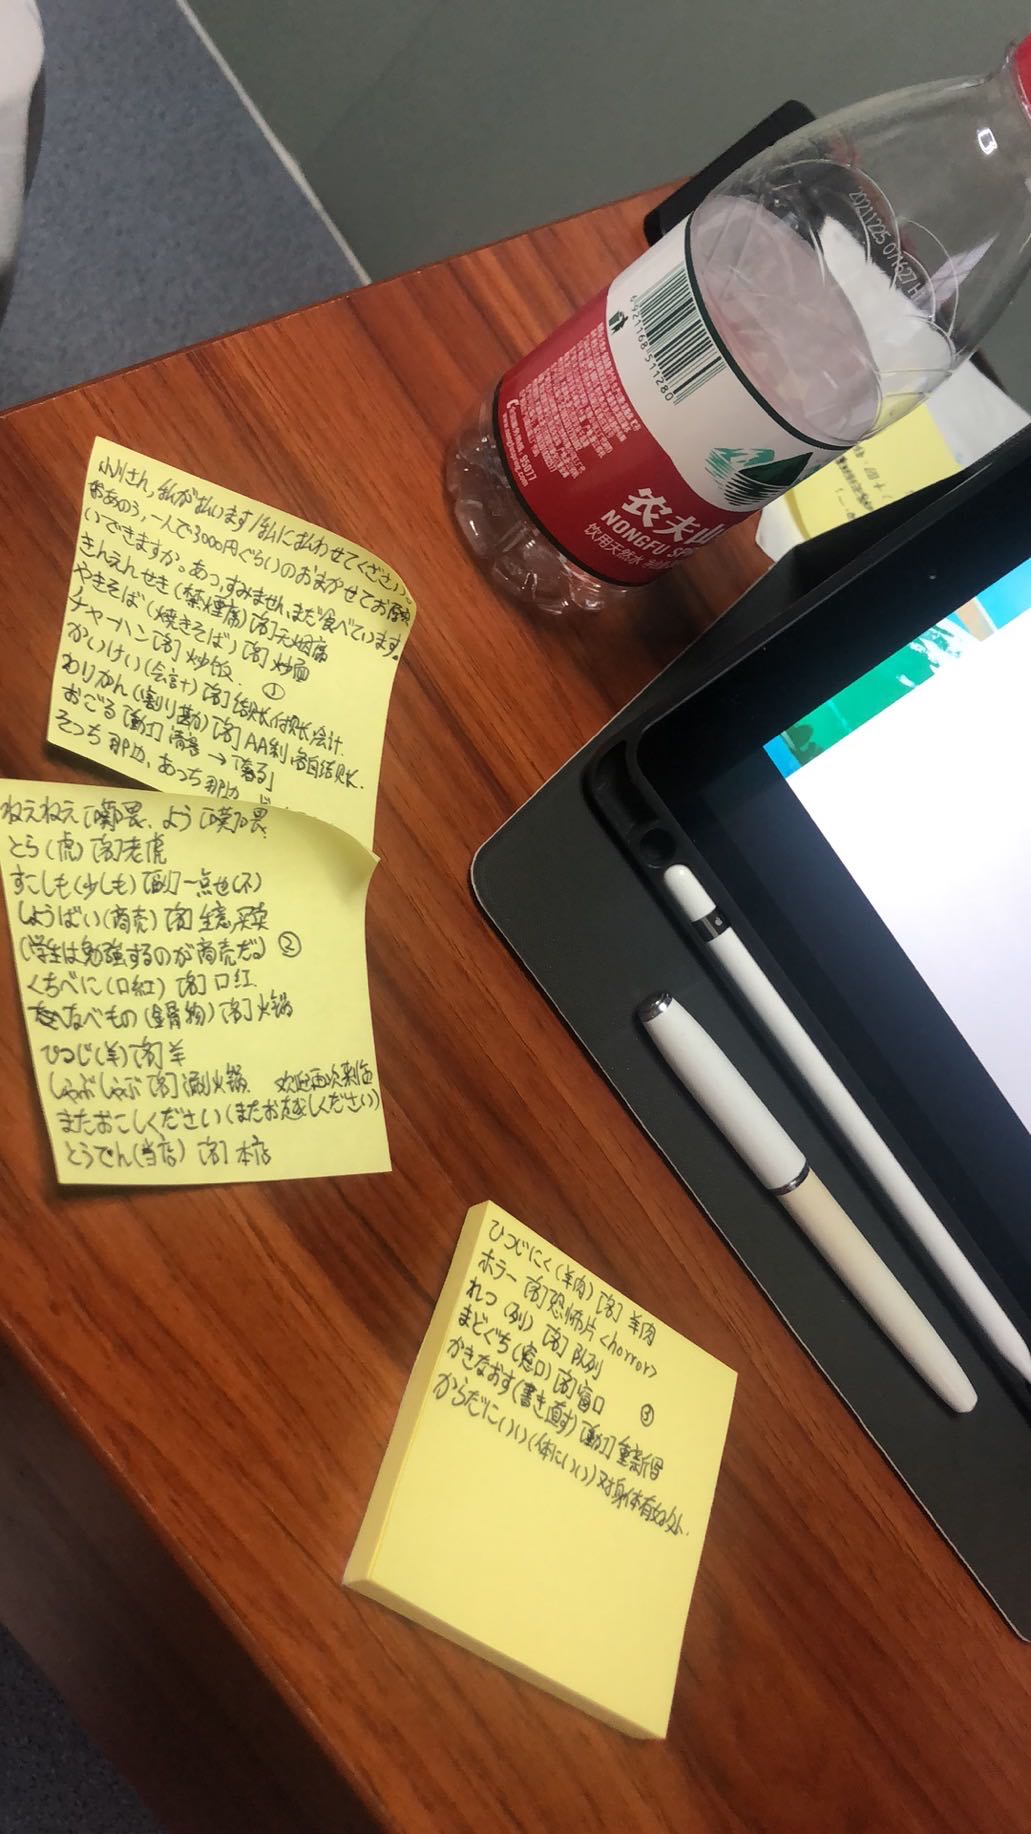 小川さん,私が払います/私に払わせてください。
おあのう,一人で3000円ぐらいのおまかせてお願
いできますか。あっ,すみません,まだ食べています。
きんえんせき(禁煙席)[名]无烟席
やきそば(焼きそば)[名]炒面
チャーハン[名]炒饭. ①
かいけい(会計)[名]结账,付账,会计
わりかん(割り勘)[名]AA制,各自结账.
おごる[動1]請客→「奢る」
そっち 那边,あっち 那边
ねえねえ[嘆]喂、よう[嘆]喂
とら(虎)[名]老虎
すこしも(少しも)[副]一点也(不)
しょうばい(商売)[名]生意,买卖
(学生は勉強するのが商売だ) ②
くちべに(口紅)[名]口红.
なべもの(鍋物)[名]火锅
ひつじ(羊)[名]羊
しゃぶしゃぶ[名]涮火锅. 欢迎再次来店
またおこしください(またお越しください)
とうてん(当店)[名]本店
ひつじにく(羊肉)[名]羊肉
ホラー[名]恐怖片<horror>
れつ(列)[名]队列
まどぐち(窓口)[名]窗口
かきなおす(書き直す)[動1]重新写 ③
からだにいい(体にいい)对身体有好处.
农夫山
NONGFU SP
饮用天然水
95077
6 921168 511280
20211225 071627 H